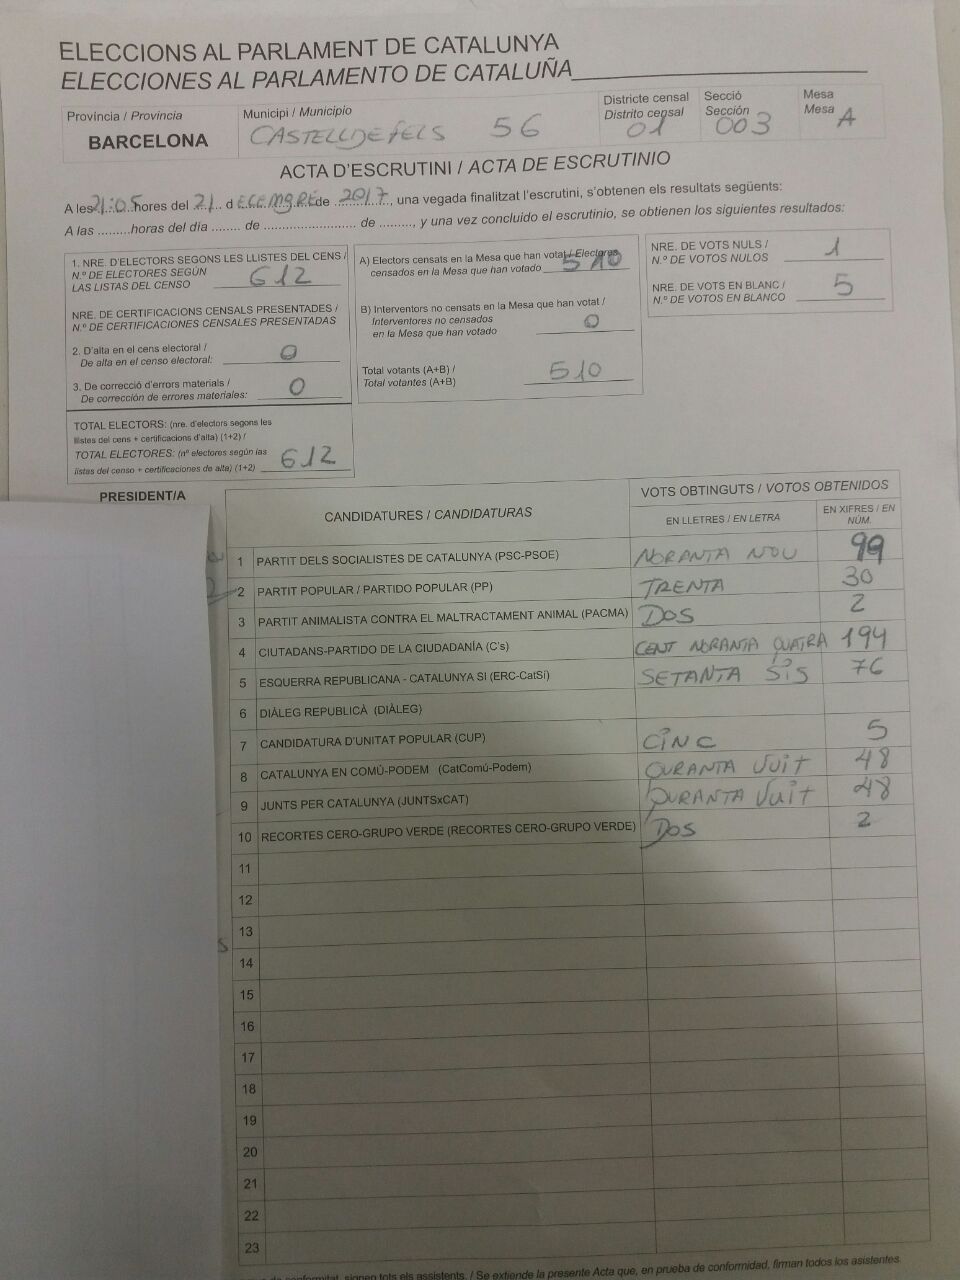 ELECCIONS AL PARLAMENT DE CATALUNYA
ELECCIONES AL PARLAMENTO DE CATALUÑA
Província / Provincia
BARCELONA
Municipi / Municipio
CASTELLDEFELS 56
Districte censal
Distrito censal
01
Secció
Sección
003
Mesa
Mesa A
ACTA D'ESCRUTINI / ACTA DE ESCRUTINIO
A les 21:05 hores del 21 d ECEMBRE de 2017, una vegada finalitzat l'escrutini, s'obtenen els resultats següents:
A las .........horas del día ........ de ......................... de ........., y una vez concluido el escrutinio, se obtienen los siguientes resultados:
1. NRE. D'ELECTORS SEGONS LES LLISTES DEL CENS /
N.º DE ELECTORES SEGÚN
LAS LISTAS DEL CENSO 612
NRE. DE CERTIFICACIONS CENSALS PRESENTADES /
N.º DE CERTIFICACIONES CENSALES PRESENTADAS
2. D'alta en el cens electoral /
De alta en el censo electoral: 0
3. De correcció d'errors materials /
De corrección de errores materiales: 0
TOTAL ELECTORS: (nre. d'electors segons les
llistes del cens + certificacions d'alta) (1+2) /
TOTAL ELECTORES: (nº electores según las
listas del censo + certificaciones de alta) (1+2) 612
A) Electors censats en la Mesa que han votat / Electores
censados en la Mesa que han votado 510
B) Interventors no censats en la Mesa que han votat /
Interventores no censados
en la Mesa que han votado 0
Total votants (A+B) /
Total votantes (A+B) 510
NRE. DE VOTS NULS /
N.º DE VOTOS NULOS 1
NRE. DE VOTS EN BLANC /
N.º DE VOTOS EN BLANCO 5
PRESIDENT/A
CANDIDATURES / CANDIDATURAS
VOTS OBTINGUTS / VOTOS OBTENIDOS
EN LLETRES / EN LETRA
EN XIFRES / EN NÚM.
1 PARTIT DELS SOCIALISTES DE CATALUNYA (PSC-PSOE) NORANTA NOU 99
2 PARTIT POPULAR / PARTIDO POPULAR (PP) TRENTA 30
3 PARTIT ANIMALISTA CONTRA EL MALTRACTAMENT ANIMAL (PACMA) DOS 2
4 CIUTADANS-PARTIDO DE LA CIUDADANÍA (C's) CENT NORANTA QUATRA 194
5 ESQUERRA REPUBLICANA - CATALUNYA SÍ (ERC-CatSí) SETANTA SIS 76
6 DIÀLEG REPUBLICÀ (DIÀLEG)
7 CANDIDATURA D'UNITAT POPULAR (CUP) CINC 5
8 CATALUNYA EN COMÚ-PODEM (CatComú-Podem) QURANTA VUIT 48
9 JUNTS PER CATALUNYA (JUNTSxCAT) QURANTA VUIT 48
10 RECORTES CERO-GRUPO VERDE (RECORTES CERO-GRUPO VERDE) DOS 2
11
12
13
14
15
16
17
18
19
20
21
22
23
conformitat, signen tots els assistents. / Se extiende la presente Acta que, en prueba de conformidad, firman todos los asistentes.